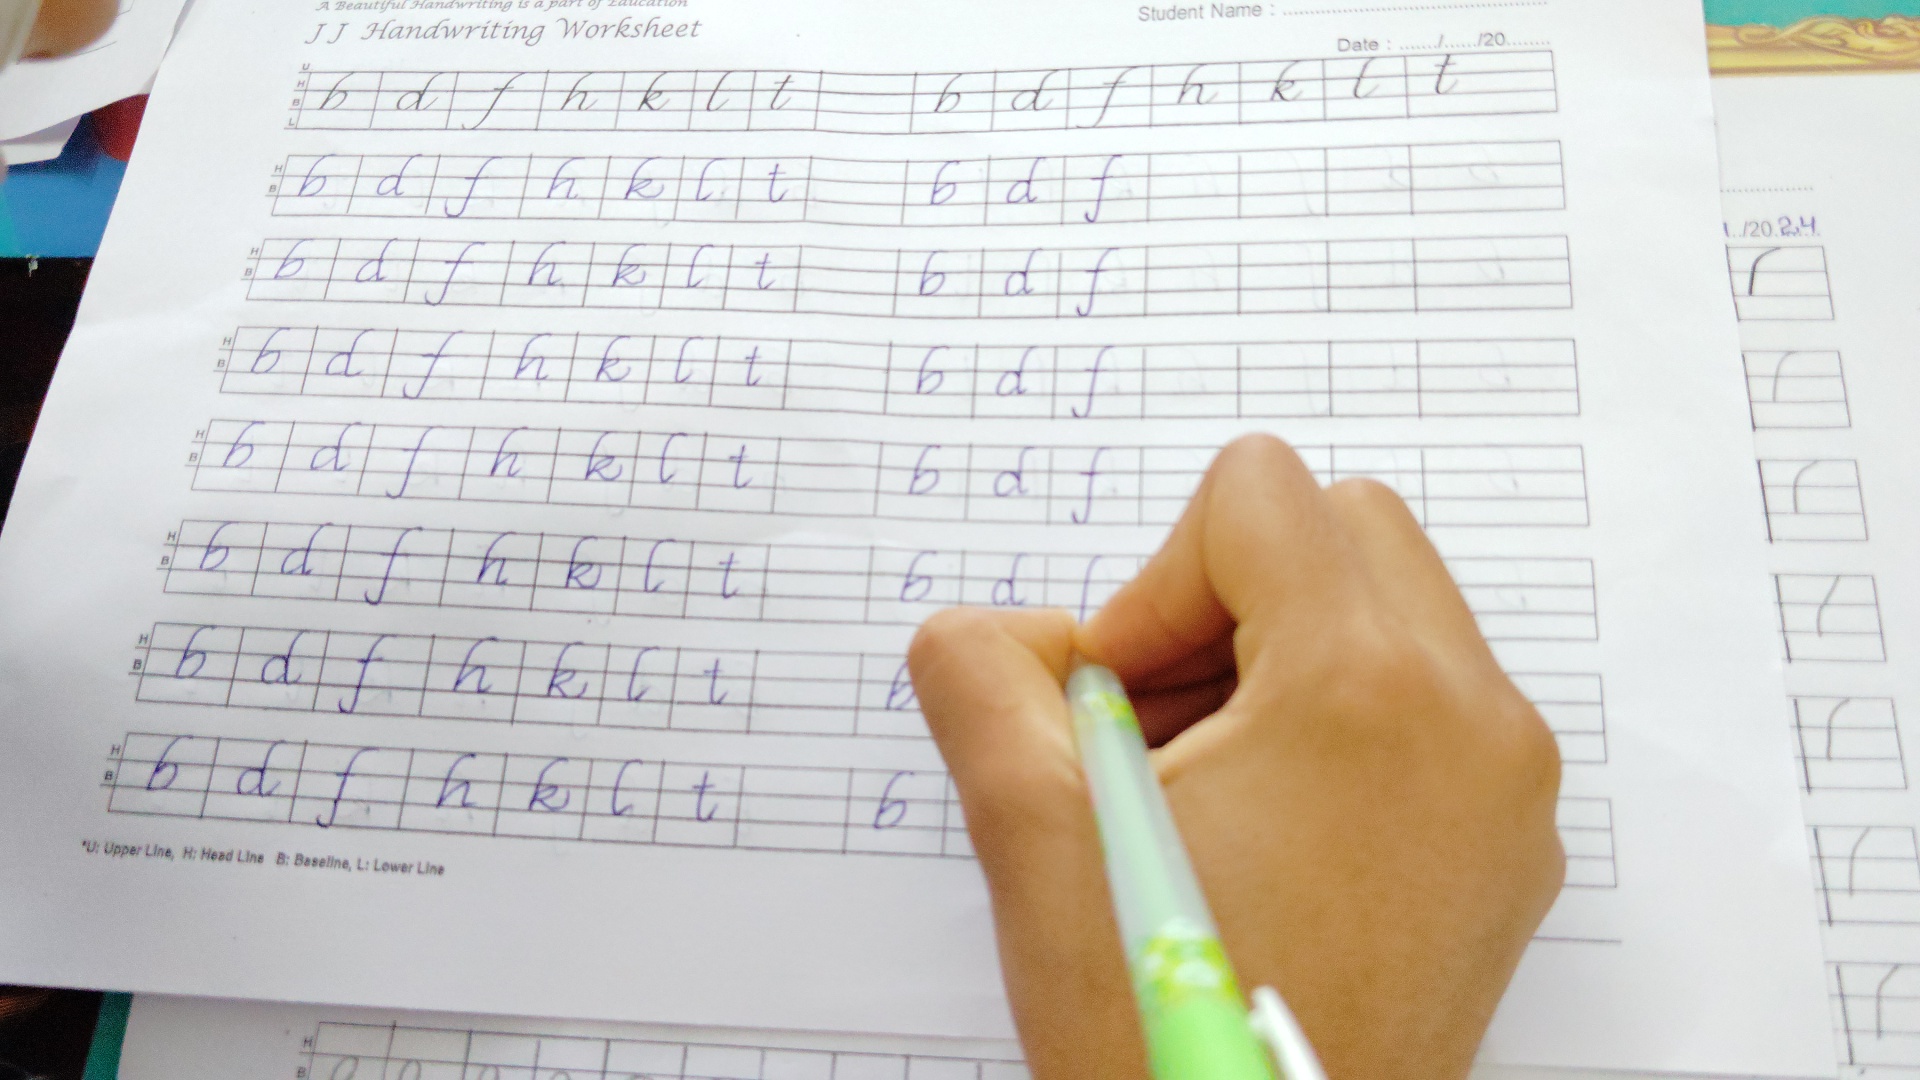 A Beautiful Handwriting is a part of Education
JJ Handwriting Worksheet
Student Name : ................................................
Date : ......./....../20........
U
H
B
L
b d f h k l t b d f h k l t
H
B
b d f h k l t b d f
H
B
b d f h k l t b d f
H
B
b d f h k l t b d f
H
B
b d f h k l t b d f
H
B
b d f h k l t b d f
H
B
b d f h k l t b
H
B
b d f h k l t b
*U: Upper Line, H: Head Line B: Baseline, L: Lower Line
../20.24
H
B